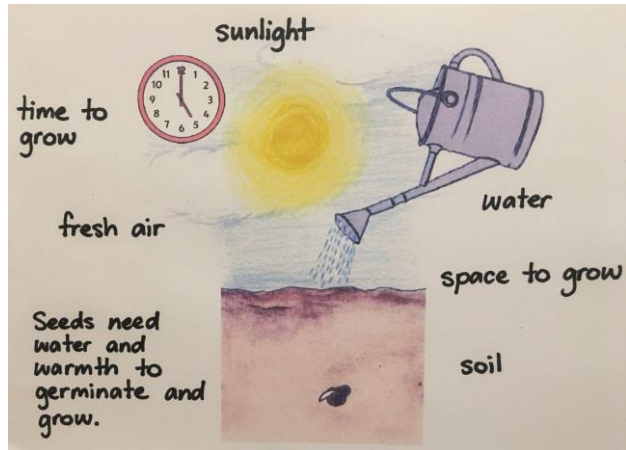 sunlight
12
1
2
3
4
5
6
7
8
9
10
11
time to
grow
fresh air
water
space to grow
Seeds need
water and
warmth to
germinate and
grow.
soil